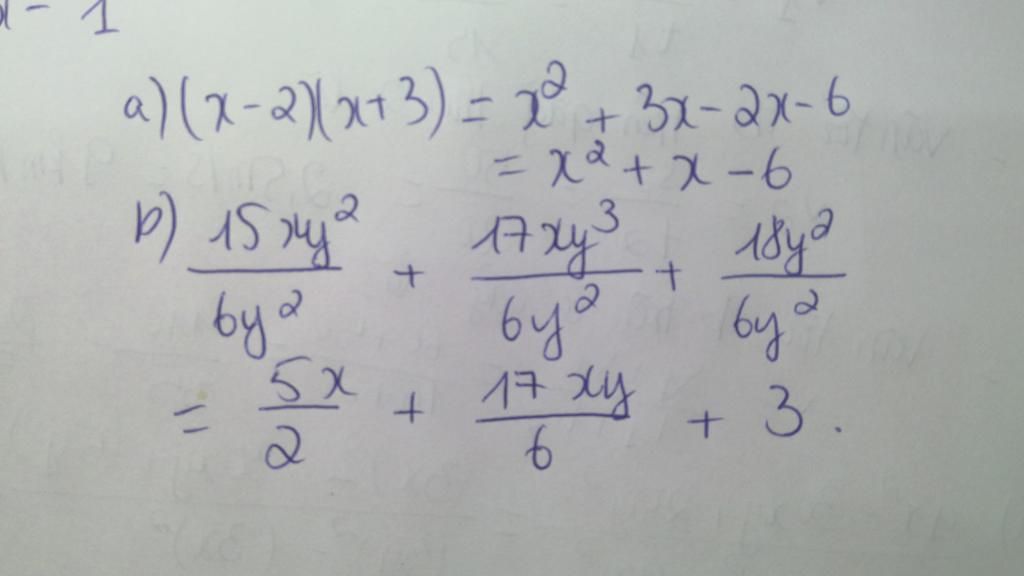 x - 1
a) (x - 2)(x + 3) = x² + 3x - 2x - 6
= x² + x - 6
b) 15xy²/6y² + 17xy³/6y² + 18y²/6y²
= 5x/2 + 17xy/6 + 3 .